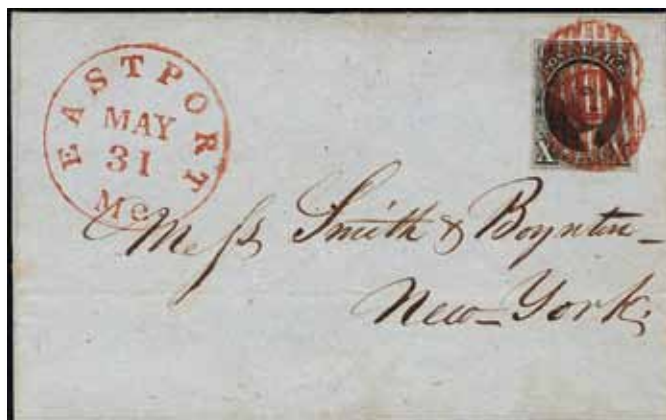 EASTPORT
MAY
31
Me
X X
Mess Smith & Boynton
New-York,